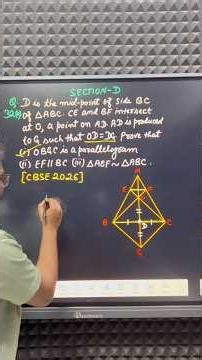 SECTION-D
Q. D is the mid-point of side BC
32(A) of △ABC. CE and BF intersect
at O, a point on AD. AD is produced
to G such that OD=DG. Prove that
(i) OBGC is a parallelogram
(ii) EF||BC (iii) △AEF ~ △ABC.
[CBSE 2026]
A
E
F
O
B
D
C
G